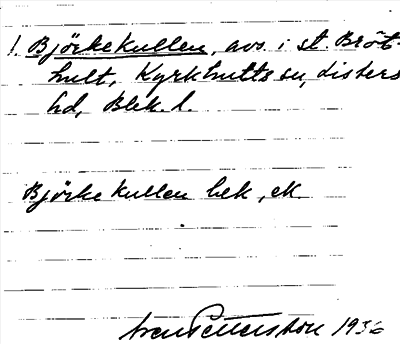 1. Björkekullen, avs. i st. Bröt-
hult, Kyrkhults sn, Listers
hd, Blek. l.
Björkekullen bek, ek.
Sven Pettersson 1936